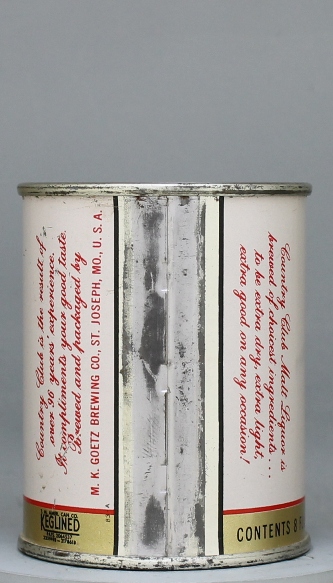 Country Club is the result of
over 90 years' experience.
It compliments your good taste.
Brewed and packaged by
M. K. GOETZ BREWING CO., ST. JOSEPH, MO., U. S. A.
CAN CO.
KEGLINED
Country Club Malt Liquor is
brewed of choicest ingredients . . .
to be extra dry, extra light,
extra good on any occasion!
CONTENTS 8